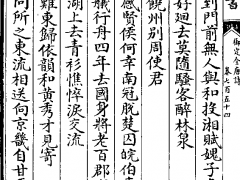 御定全唐詩
卷七百五十四
到門前無人與和投湘賦愧子
好廻去莫隨騷客醉林泉
饒州别周使君
感賢侯何幸南冠脫楚囚皖伯
艤行舟四年去國身將老百郡
湖上去青衫憔悴淚交流
難東歸依韻和黄秀才見寄
向所之東流相送向京畿自甘